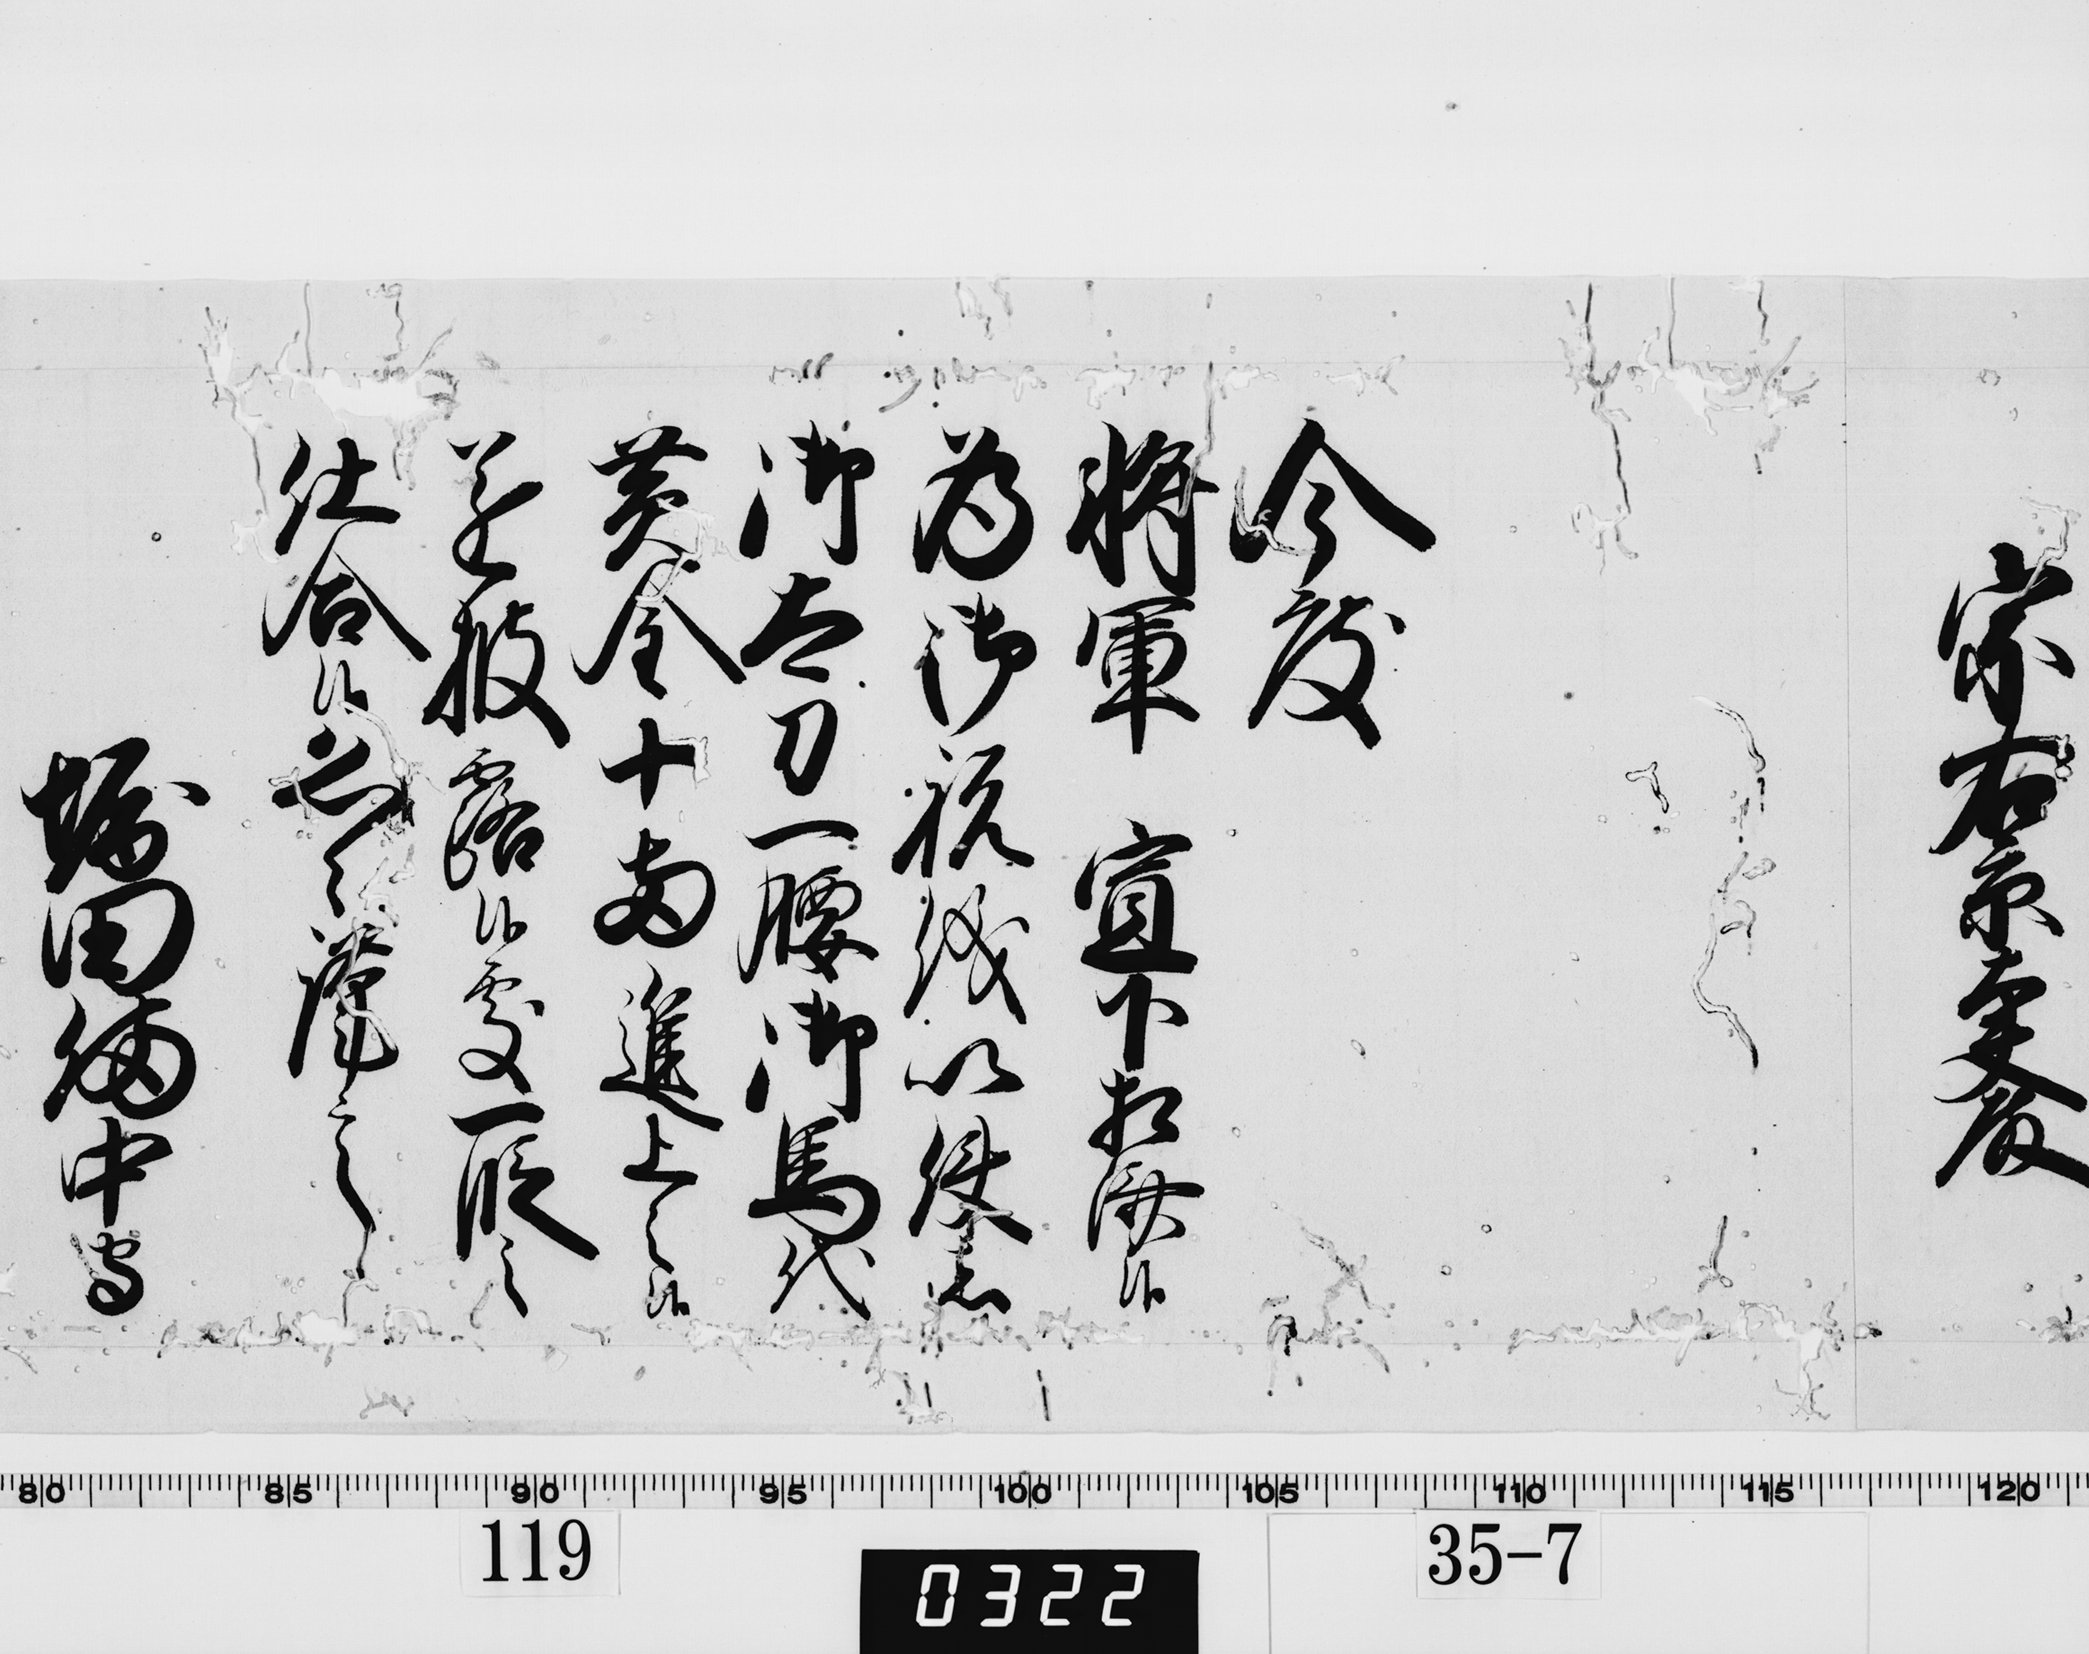 宗右京大夫殿
今度
将軍　宣下相済候
為御祝儀以使者
御太刀一腰御馬代
黄金十両進上之候
遂披露候処一段之
仕合候恐々謹言
堀田備中守
80 85 90 95 100 105 110 115 120
119
0322
35-7